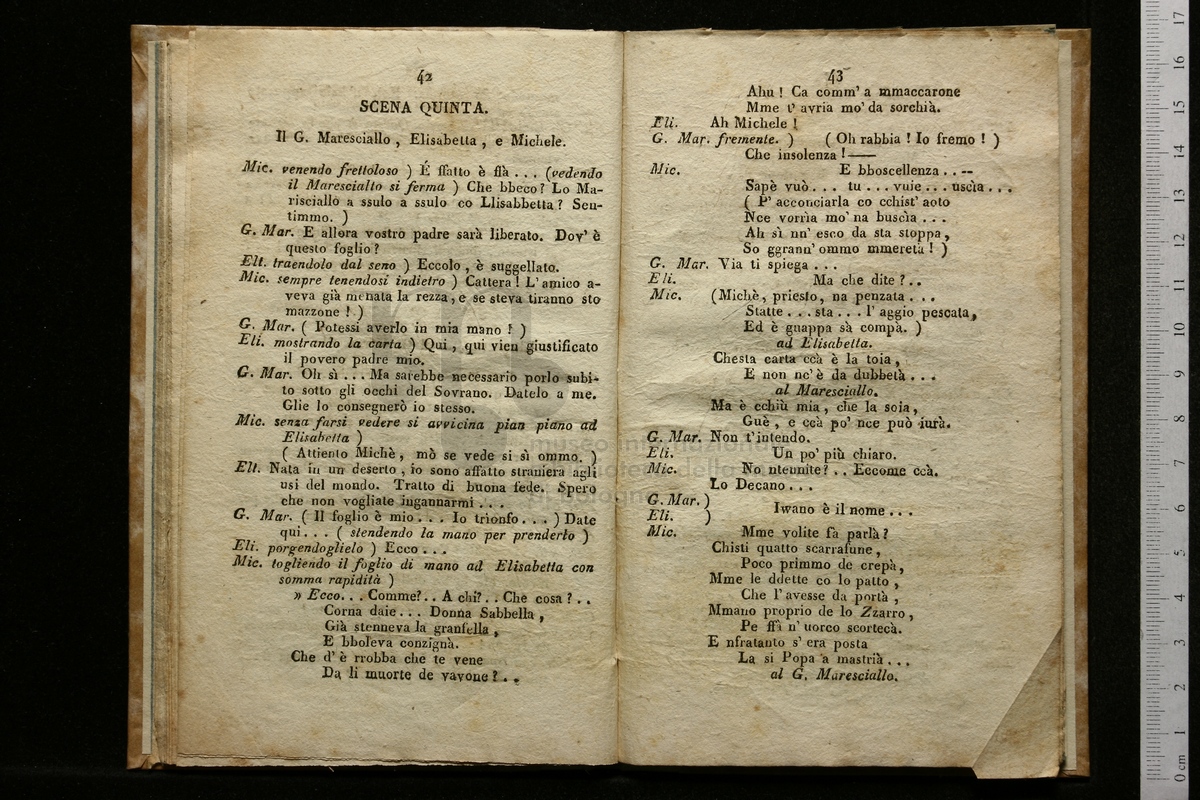 42
SCENA QUINTA.
Il G. Maresciallo, Elisabetta, e Michele.
Mic. venendo frettoloso ) É ffatto è flà ... (vedendo
il Maresciallo si ferma ) Che bbeco? Lo Ma-
risciallo a ssulo a ssulo co Llisabbetta? Sen-
timmo. )
G. Mar. E allora vostro padre sarà liberato. Dov' è
questo foglio?
Eli. traendolo dal seno ) Eccolo, è suggellato.
Mic. sempre tenendosi indietro ) Cattera! L' amico a-
veva già menata la rezza, e se steva tiranno sto
mazzone! )
G. Mar. ( Potessi averlo in mia mano! )
Eli. mostrando la carta ) Qui, qui vien giustificato
il povero padre mio.
G. Mar. Oh sì ... Ma sarebbe necessario porlo subi-
to sotto gli occhi del Sovrano. Datelo a me.
Glie lo consegnerò io stesso.
Mic. senza farsi vedere si avvicina pian piano ad
Elisabetta )
( Attiento Michè, mò se vede si sì ommo. )
Eli. Nata in un deserto, io sono affatto straniera agli
usi del mondo. Tratto di buona fede. Spero
che non vogliate ingannarmi ...
G. Mar. ( Il foglio è mio ... Io trionfo ... ) Date
qui ... ( stendendo la mano per prenderlo )
Eli. porgendoglielo ) Ecco ...
Mic. togliendo il foglio di mano ad Elisabetta con
somma rapidità )
» Ecco... Comme?.. A chi?.. Che cosa?..
Corna daie... Donna Sabbella,
Già stenneva la granfella,
E bboleva conzignà.
Che d' è rrobba che te vene
Da li muorte de vavone?..
43
Ahu! Ca comm' a mmaccarone
Mme t' avria mo' da sorchià.
Eli. Ah Michele!
G. Mar. fremente. ) ( Oh rabbia! Io fremo! )
Che insolenza!—
Mic. E bboscellenza ..--
Sapè vuò... tu ... vuie ... uscìa ...
( P' acconciarla co cchist' aoto
Nce vorrìa mo' na buscìa ...
Ah sì nn' esco da sta stoppa,
So ggrann' ommo mmeretà! )
G. Mar. Via ti spiega ...
Eli. Ma che dite?..
Mic. (Michè, priesto, na penzata ...
Statte ... sta ... l' aggio pescata,
Ed è guappa sà compà. )
ad Elisabetta.
Chesta carta ccà è la toia,
E non nc' è da dubbetà ...
al Maresciallo.
Ma è cchiù mia, che la soia,
Guè, e ccà po' nce può jurà.
G. Mar. Non t' intendo.
Eli. Un po' più chiaro.
Mic. No ntennite?.. Eccome ccà.
Lo Decano ...
G. Mar. )
Eli. ) Iwano è il nome ...
Mic. Mme volite fà parlà?
Chisti quatto scarrafune,
Poco primmo de crepà,
Mme le ddette co lo patto,
Che l' avesse da portà,
Mmano proprio de lo Zzarro,
Pe ffà n' uorco scortecà.
E nfratanto s' era posta
La si Popa a mastrià ...
al G. Maresciallo.